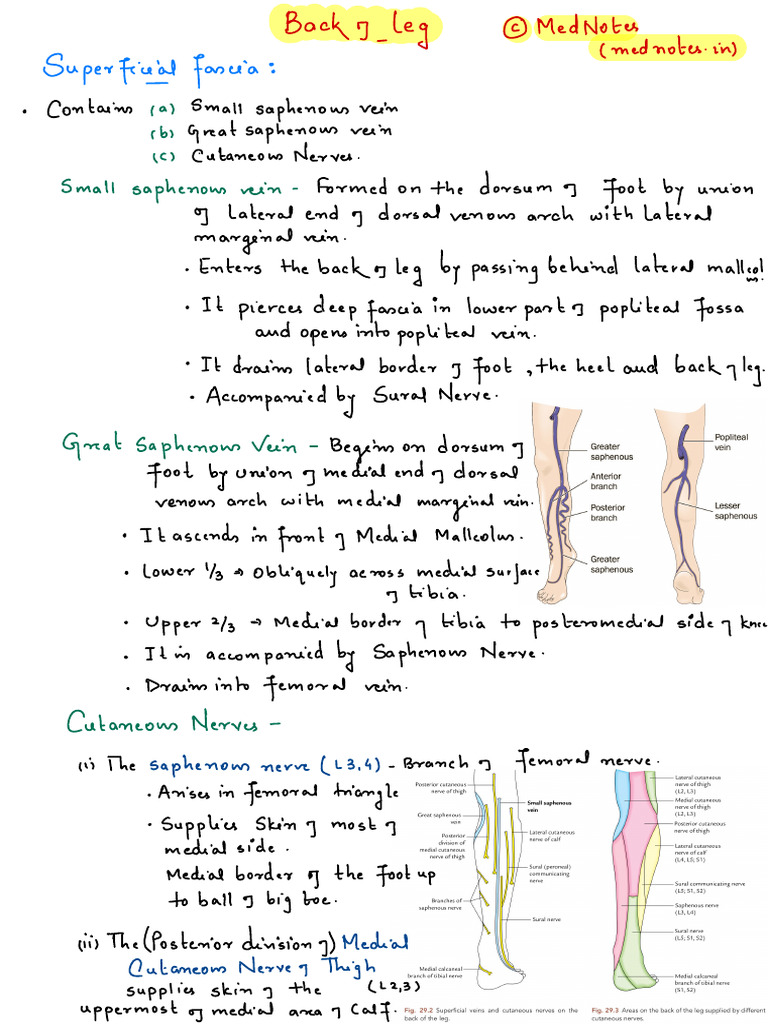 Back of leg
© MedNotes
(mednotes.in)
Superficial fascia:
• Contains (a) Small saphenous vein
(b) Great saphenous vein
(c) Cutaneous Nerves.
Small saphenous vein - Formed on the dorsum of foot by union
of lateral end of dorsal venous arch with lateral
marginal vein.
• Enters the back of leg by passing behind lateral malleolus.
• It pierces deep fascia in lower part of popliteal fossa
and opens into popliteal vein.
• It drains lateral border of foot, the heel and back of leg.
• Accompanied by Sural Nerve.
Great Saphenous Vein - Begins on dorsum of
foot by union of medial end of dorsal
venous arch with medial marginal vein.
• It ascends in front of Medial Malleolus.
• Lower 1/3 → Obliquely across medial surface
of tibia.
• Upper 2/3 → Medial border of tibia to posteromedial side of knee
• It is accompanied by Saphenous Nerve.
• Drains into femoral vein.
Greater
saphenous
Anterior
branch
Posterior
branch
Greater
saphenous
Popliteal
vein
Lesser
saphenous
Cutaneous Nerves -
(i) The saphenous nerve (L3,4) - Branch of femoral nerve.
• Arises in femoral triangle
• Supplies skin of most of
medial side.
Medial border of the foot up
to ball of big toe.
(ii) The (Posterior division of) Medial
Cutaneous Nerve of Thigh
(L2,3)
supplies skin of the
uppermost of medial area of Calf.
Posterior cutaneous
nerve of thigh
Great saphenous
vein
Posterior
division of
medial cutaneous
nerve of thigh
Branches of
saphenous nerve
Medial calcaneal
branch of tibial nerve
Small saphenous
vein
Lateral cutaneous
nerve of calf
Sural (peroneal)
communicating
nerve
Sural nerve
Fig. 29.2 Superficial veins and cutaneous nerves on the
back of the leg.
Lateral cutaneous
nerve of thigh
(L2, L3)
Medial cutaneous
nerve of thigh
(L2, L3)
Posterior cutaneous
nerve of thigh
Lateral cutaneous
nerve of calf
(L4, L5, S1)
Sural communicating nerve
(L5, S1, S2)
Saphenous nerve
(L3, L4)
Sural nerve
(L5, S1, S2)
Medial calcaneal
branch of tibial nerve
(S1, S2)
Fig. 29.3 Areas on the back of the leg supplied by different
cutaneous nerves.